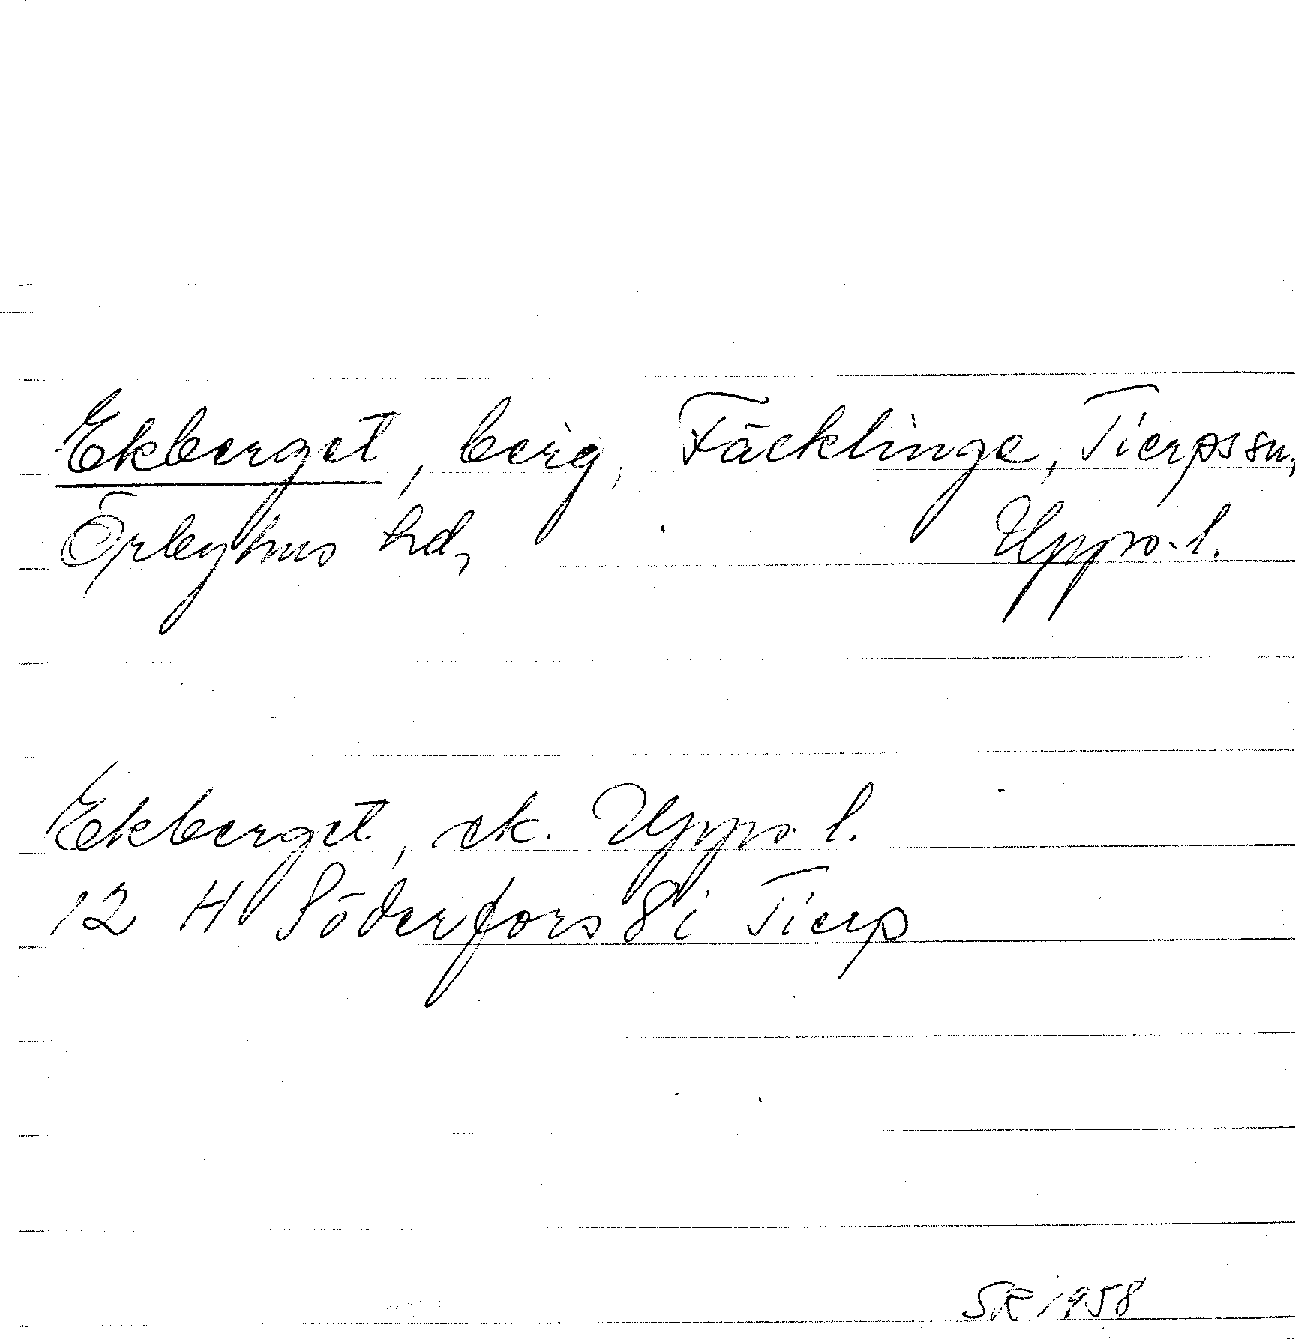 Ekberget, berg, Fäcklinge, Tierps sn,
Örbyhus hd, Upps. l.
Ekberget, ek. Upps l.
12 H Söderfors 8 i Tierp
SR 1958